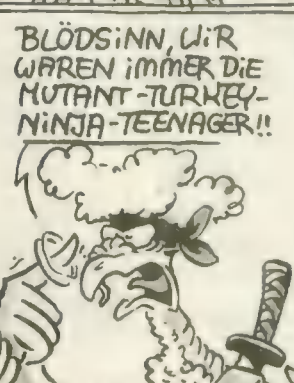 BLÖDSiNN, WiR
WAREN iMMER DiE
MUTANT-TURKEY-
NiNJA-TEENAGER!!